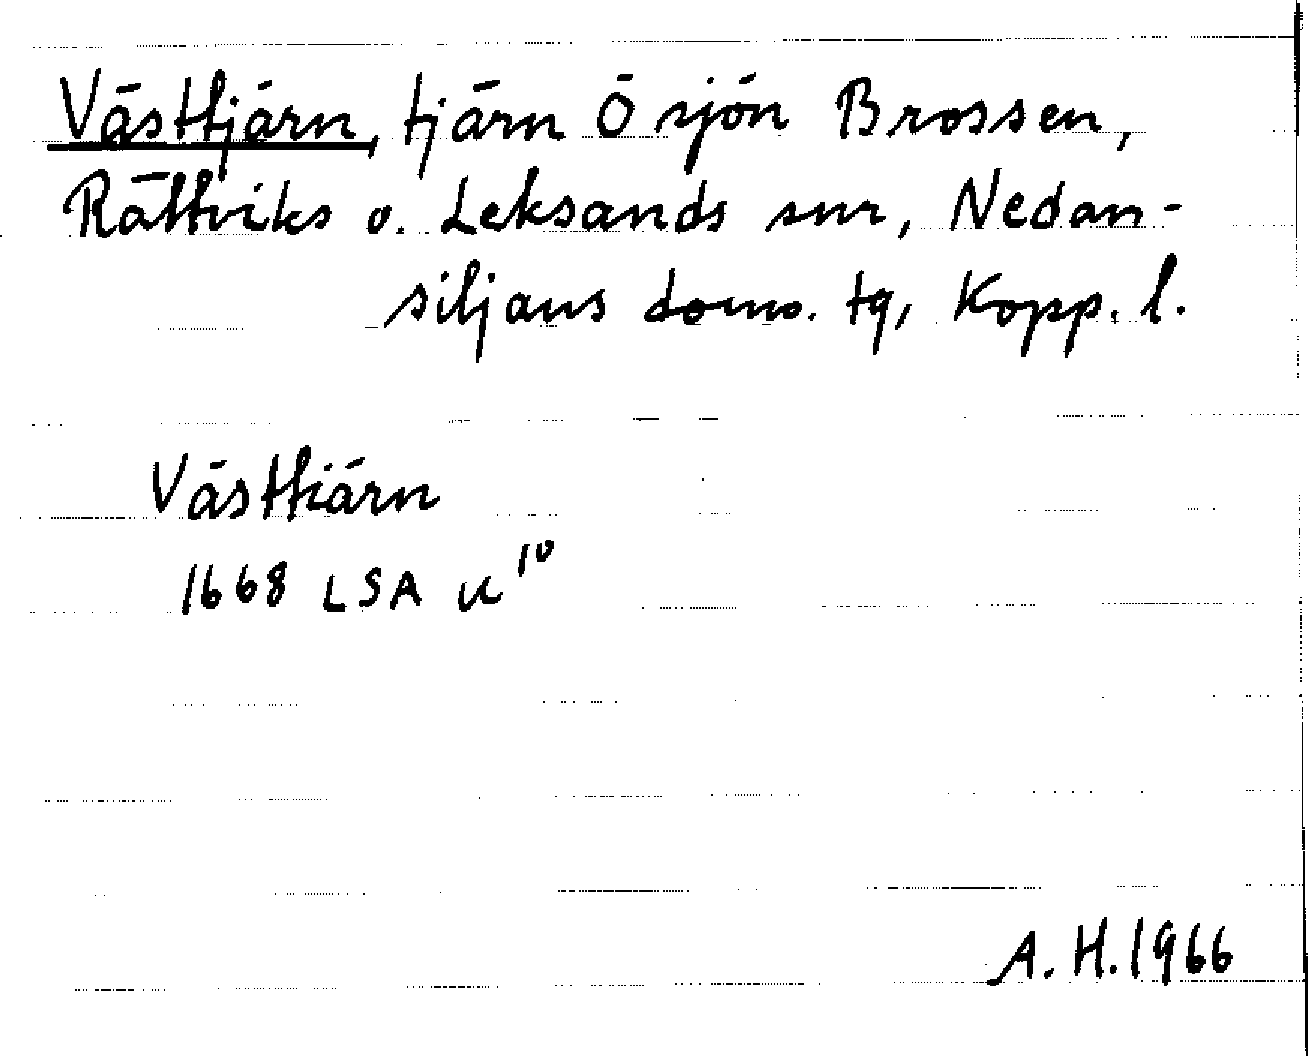 Västtjärn, tjärn Ö sjön Brossen,
Rättviks o. Leksands snr, Nedan-
siljans doms. tg, Kopp. l.
Västtiärn
1668 LSA U 10
A. H. 1966